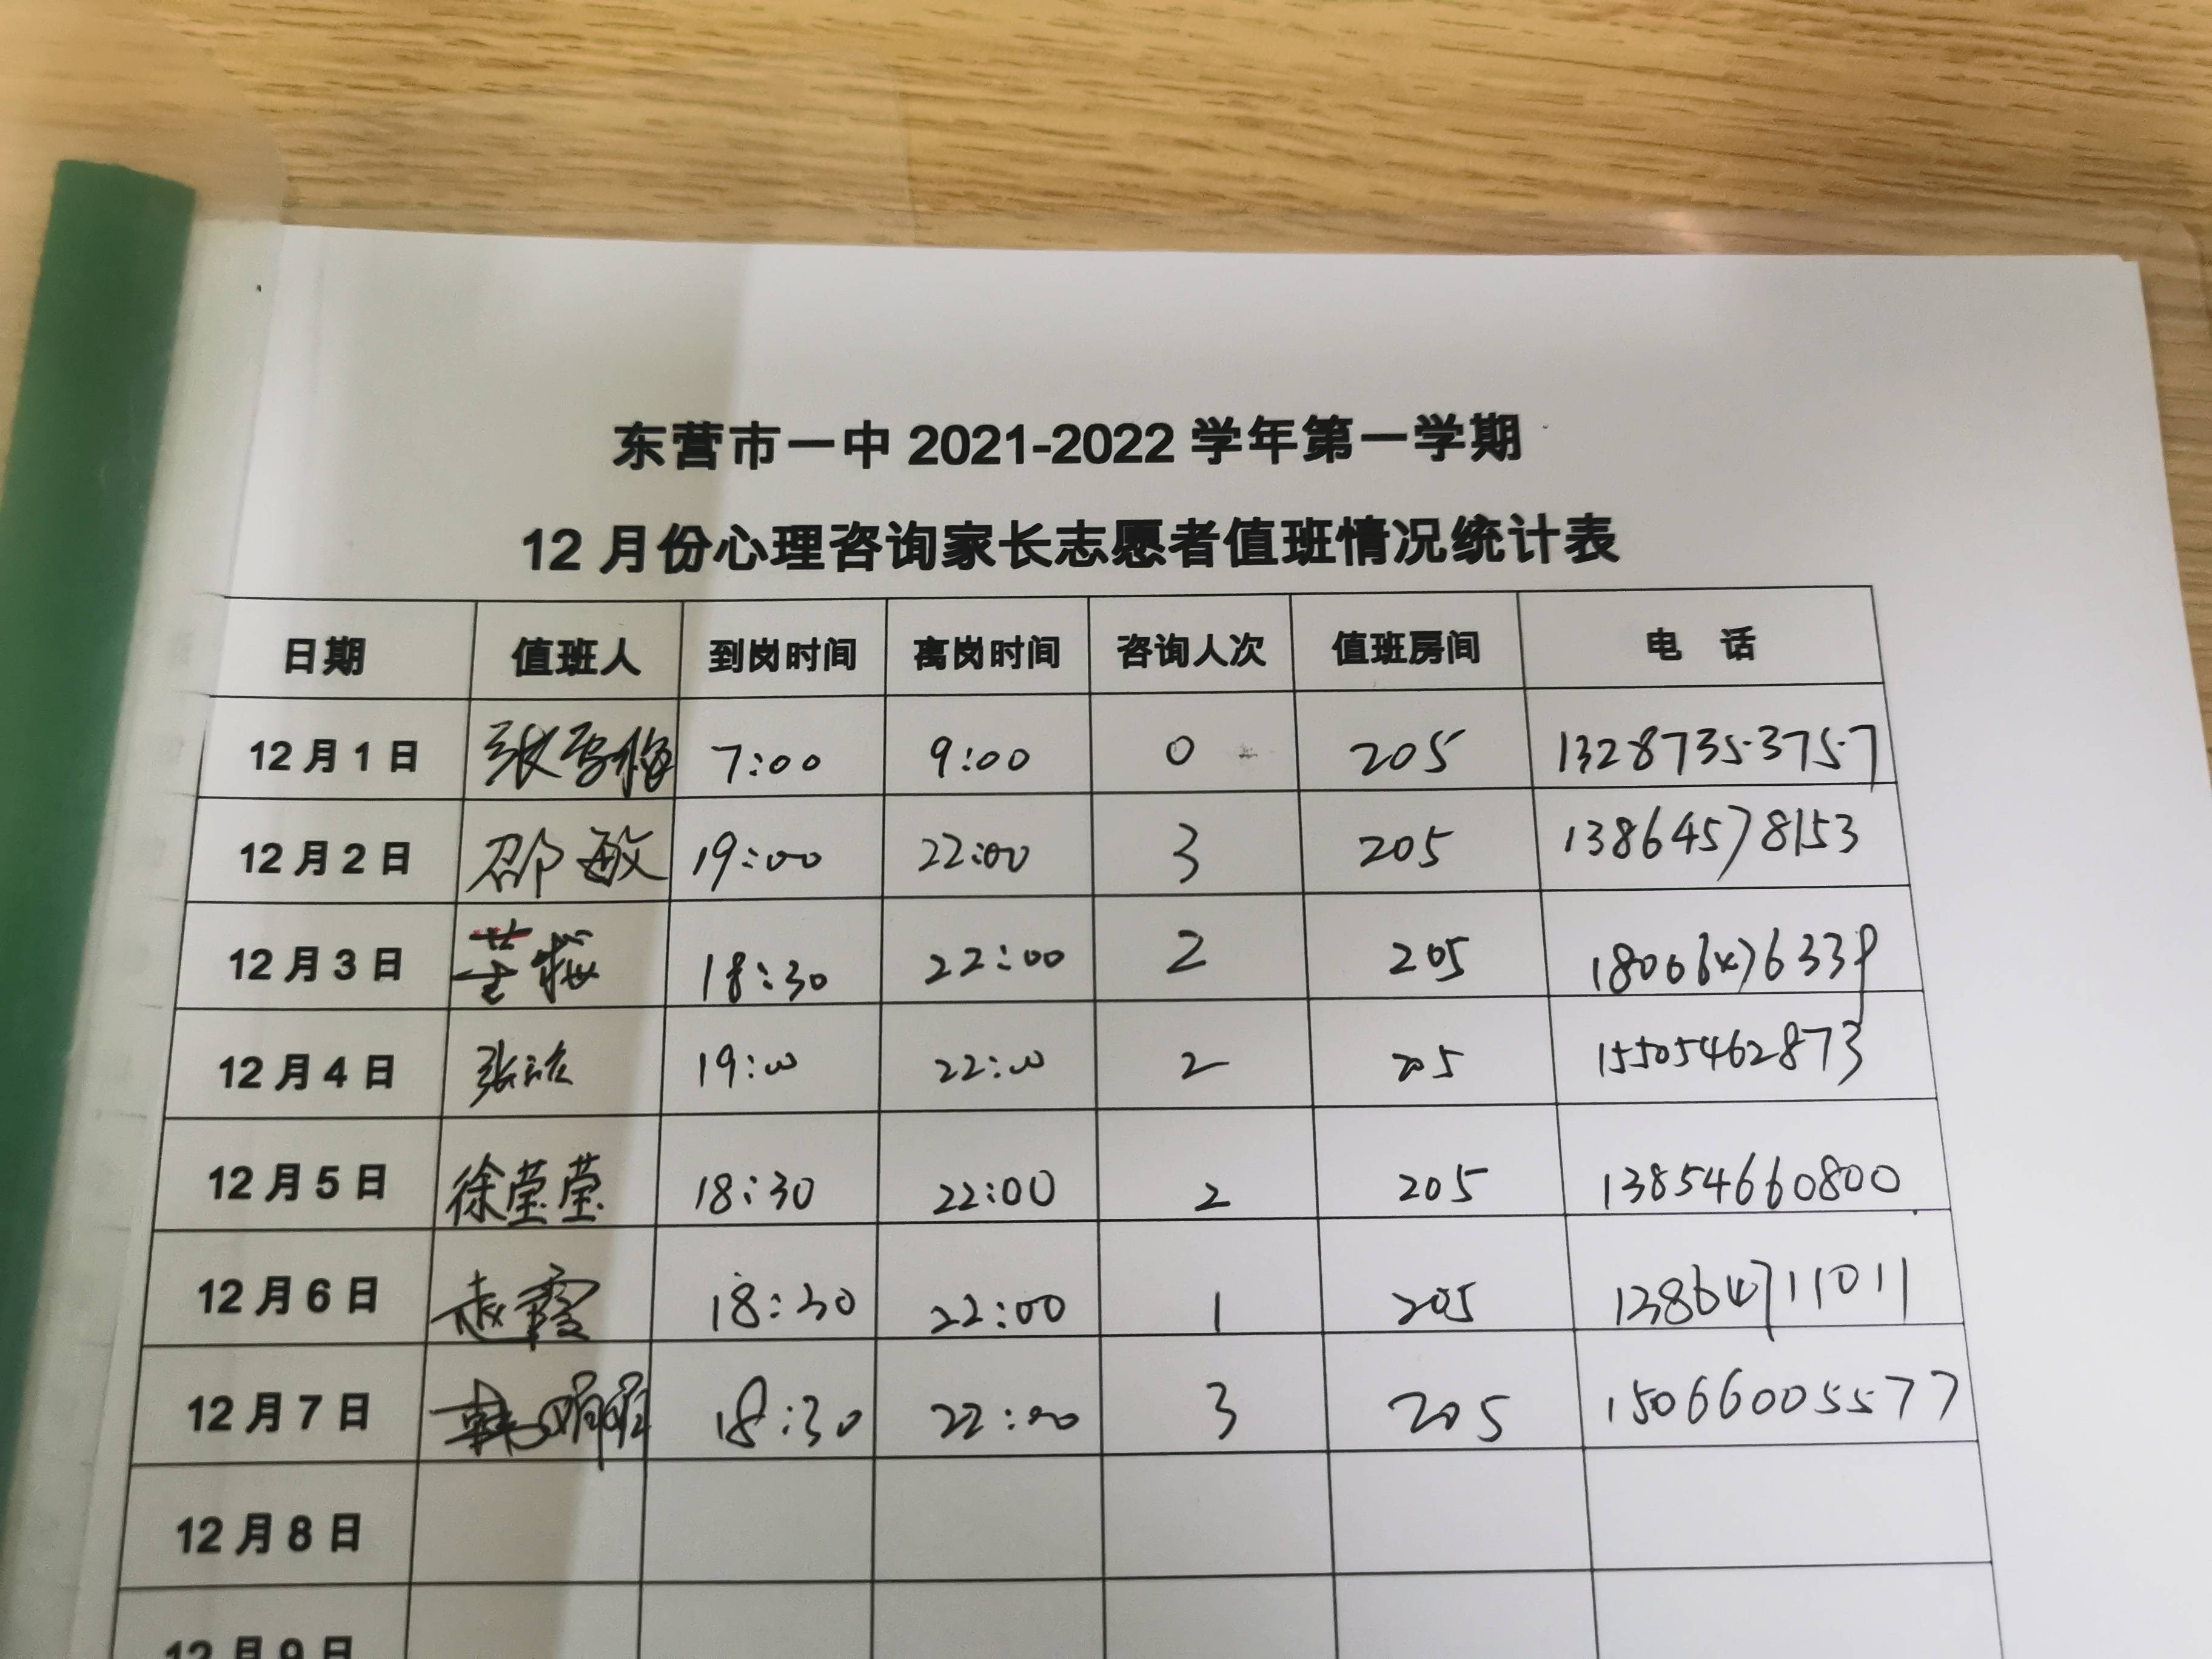 东营市一中 2021-2022 学年第一学期
12 月份心理咨询家长志愿者值班情况统计表
日期 值班人 到岗时间 离岗时间 咨询人次 值班房间 电 话
12 月 1 日 张雪梅 7:00 9:00 0 205 13287353757
12 月 2 日 邵敏 19:00 22:00 3 205 13864578153
12 月 3 日 18:30 22:00 2 205 18006476339
12 月 4 日 张 19:00 22:00 2 205 15505462873
12 月 5 日 徐莹莹 18:30 22:00 2 205 13854660800
12 月 6 日 赵霞 18:30 22:00 1 205 13864711011
12 月 7 日 韩 18:30 22:00 3 205 15066005577
12 月 8 日
12 月 9 日